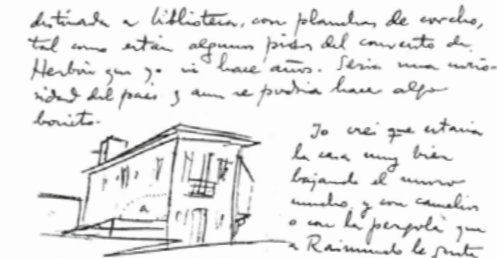 destinada a biblioteca, con planchas de corcho,
tal como están algunos pisos del convento de
Herbón que yo vi hace años. Sería una curio-
sidad del país y aun se podría hacer algo
bonito.
Yo creí que estaría
la casa muy bien
bajando el muro
mucho, y con camelios
o con la pergola que
a Raimundo le gusta
a